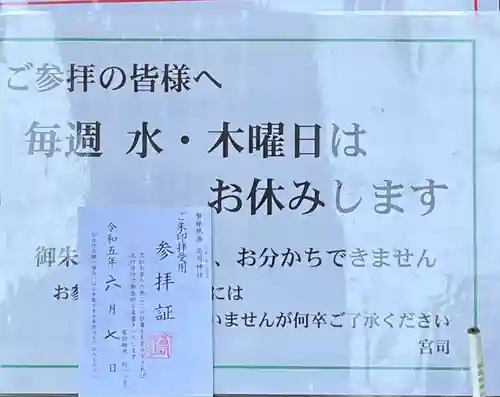 ご参拝の皆様へ
毎週 水・木曜日は
お休みします
御朱
、お分かちできません
お参
には
いませんが何卒ご了承ください
宮司
ご朱印拝受用
参拝証
令和五年 六月 七日